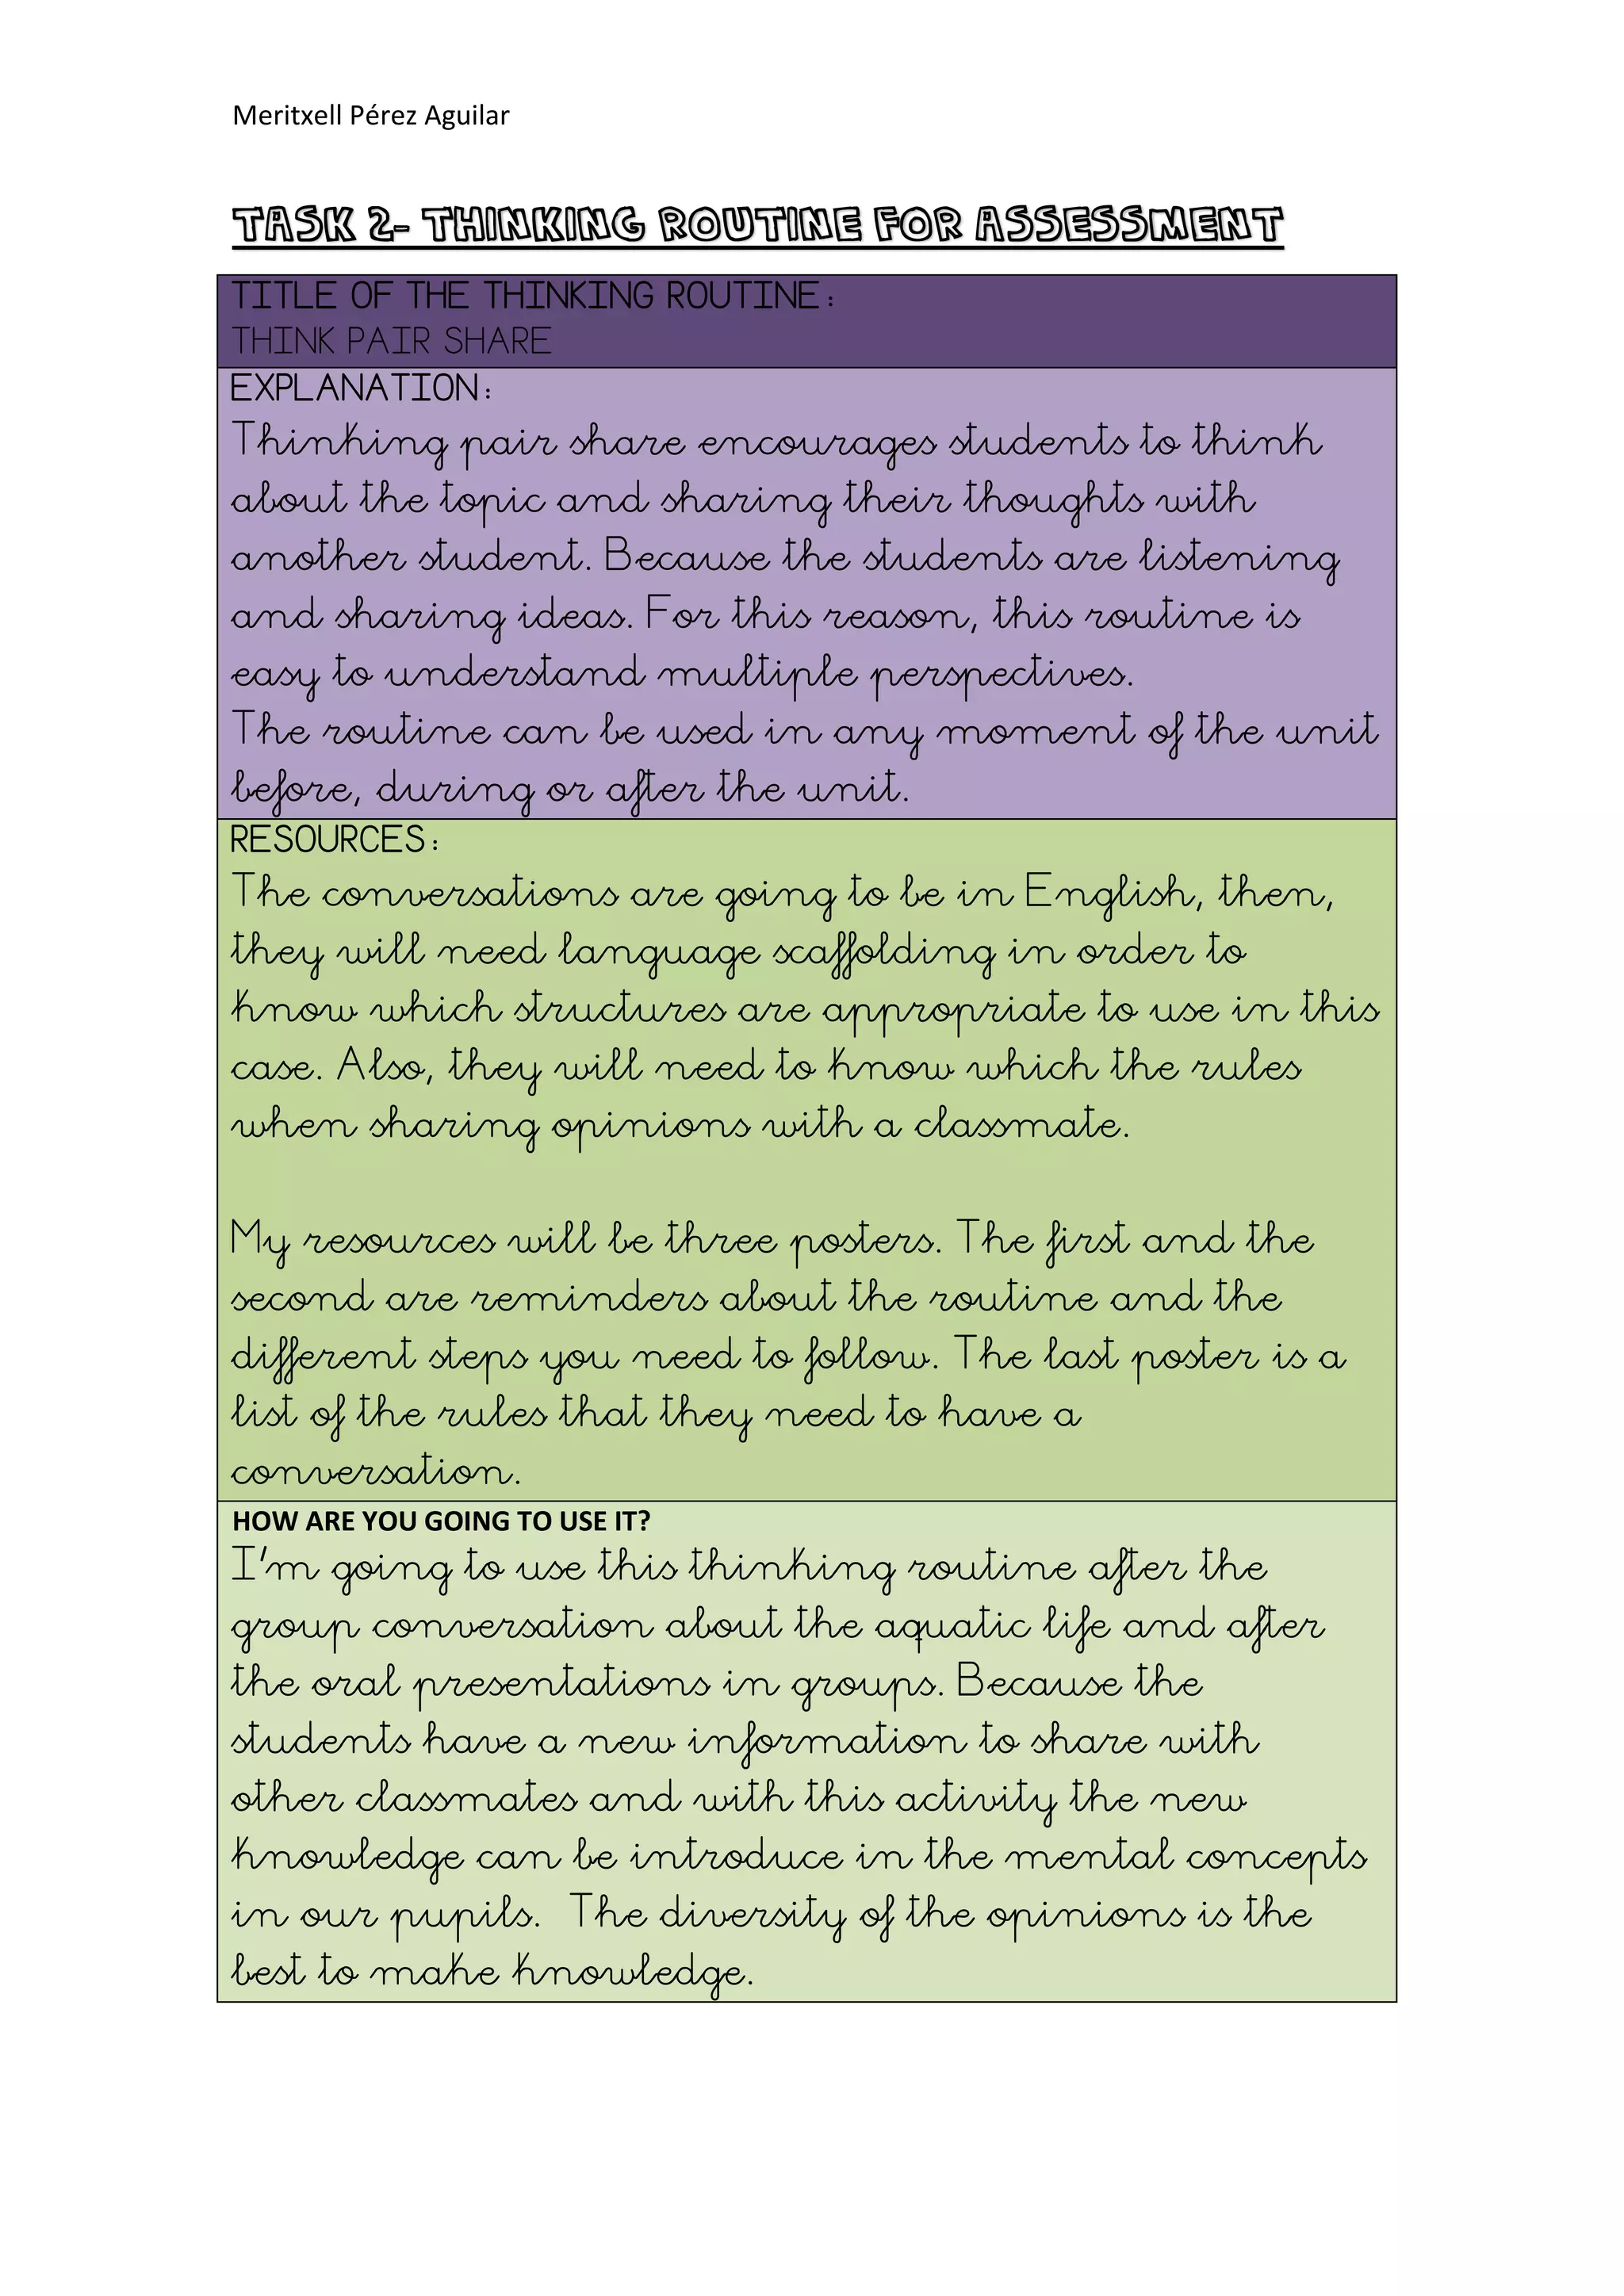 Meritxell Pérez Aguilar
TASK 2- THINKING ROUTINE FOR ASSESSMENT
TITLE OF THE THINKING ROUTINE:
THINK PAIR SHARE
EXPLANATION:
Thinking pair share encourages students to think
about the topic and sharing their thoughts with
another student. Because the students are listening
and sharing ideas. For this reason, this routine is
easy to understand multiple perspectives.
The routine can be used in any moment of the unit
before, during or after the unit.
RESOURCES:
The conversations are going to be in English, then,
they will need language scaffolding in order to
know which structures are appropriate to use in this
case. Also, they will need to know which the rules
when sharing opinions with a classmate.
My resources will be three posters. The first and the
second are reminders about the routine and the
different steps you need to follow. The last poster is a
list of the rules that they need to have a
conversation.
HOW ARE YOU GOING TO USE IT?
I'm going to use this thinking routine after the
group conversation about the aquatic life and after
the oral presentations in groups. Because the
students have a new information to share with
other classmates and with this activity the new
knowledge can be introduce in the mental concepts
in our pupils. The diversity of the opinions is the
best to make knowledge.